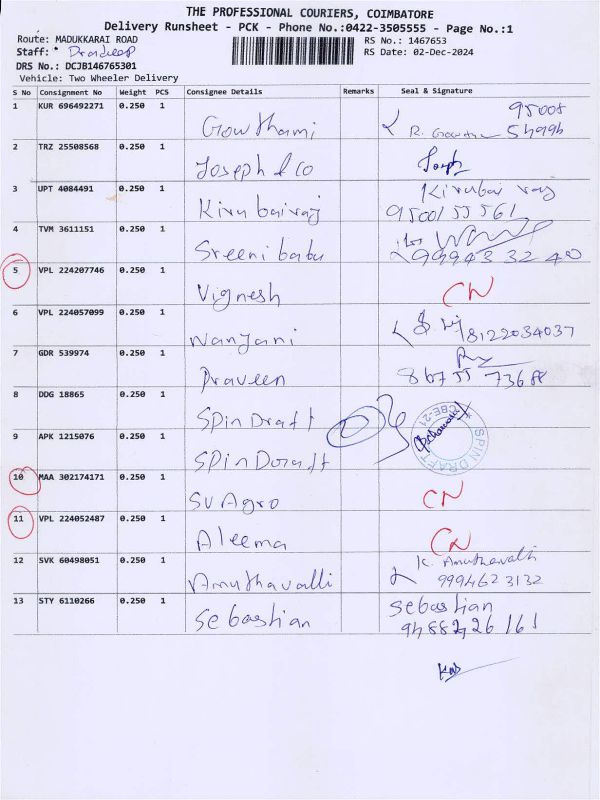 THE PROFESSIONAL COURIERS, COIMBATORE
Delivery Runsheet - PCK - Phone No.:0422-3505555 - Page No.:1
Route: MADUKKARAI ROAD
RS No.: 1467653
Staff: Pradeep
RS Date: 02-Dec-2024
DRS No.: DCJB146765301
Vehicle: Two Wheeler Delivery
S No Consignment No Weight PCS Consignee Details Remarks Seal & Signature
1 KUR 696492271 0.250 1 Gowthami R. 95008
2 TRZ 25508568 0.250 1 Joseph & co
3 UPT 4084491 0.250 1 Kirubairaj Kirubai raj
9500155561
4 TVM 3611151 0.250 1 Sreeni babu
99943 32 40
5 VPL 224207746 0.250 1 Vignesh CN
6 VPL 224057099 0.250 1 Nanjani 8122034037
7 GDR 539974 0.250 1 Praveen
86755 73688
8 DDG 18865 0.250 1 Spin Draft
9 APK 1215076 0.250 1 Spin Doraft SPIN DRAFT CBE-21
10 MAA 302174171 0.250 1 SV Agro CN
11 VPL 224052487 0.250 1 Aleema CN
12 SVK 60498051 0.250 1 Amuthavalli K. Amuthavalli
9994623132
13 STY 6110266 0.250 1 Sebastian Sebastian
9488226161